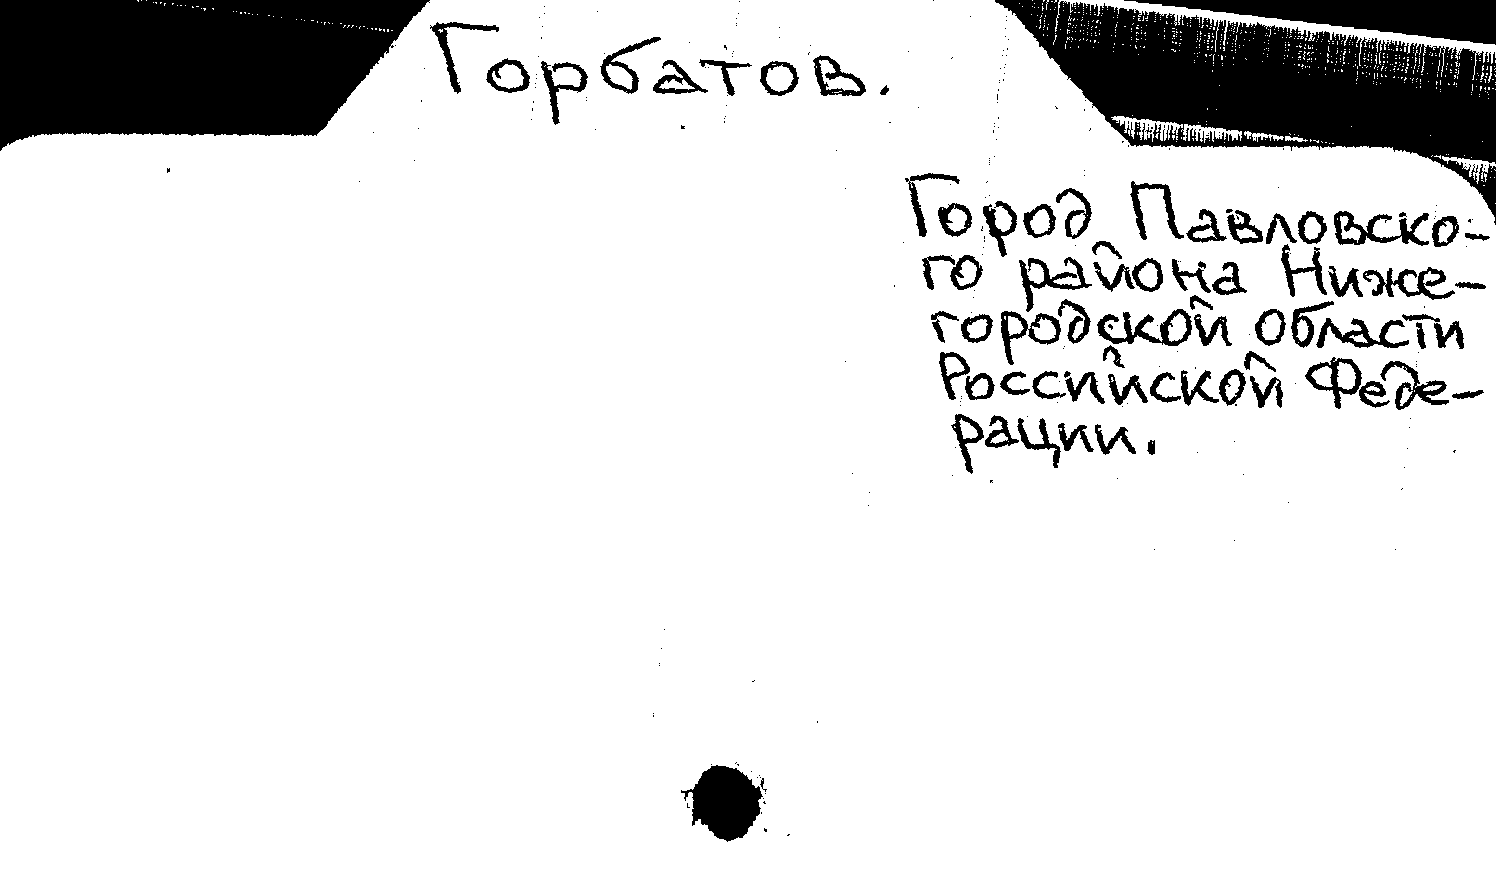 Горбатов.
Город Павловско-
го района Ниже-
городской области
Российской Феде-
рации.